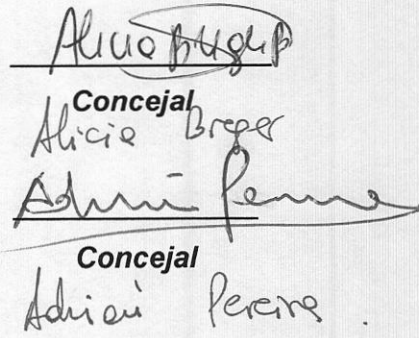 Alicia
Concejal
Alicia Breger
Adrián Pereira
Concejal
Adrián Pereira.